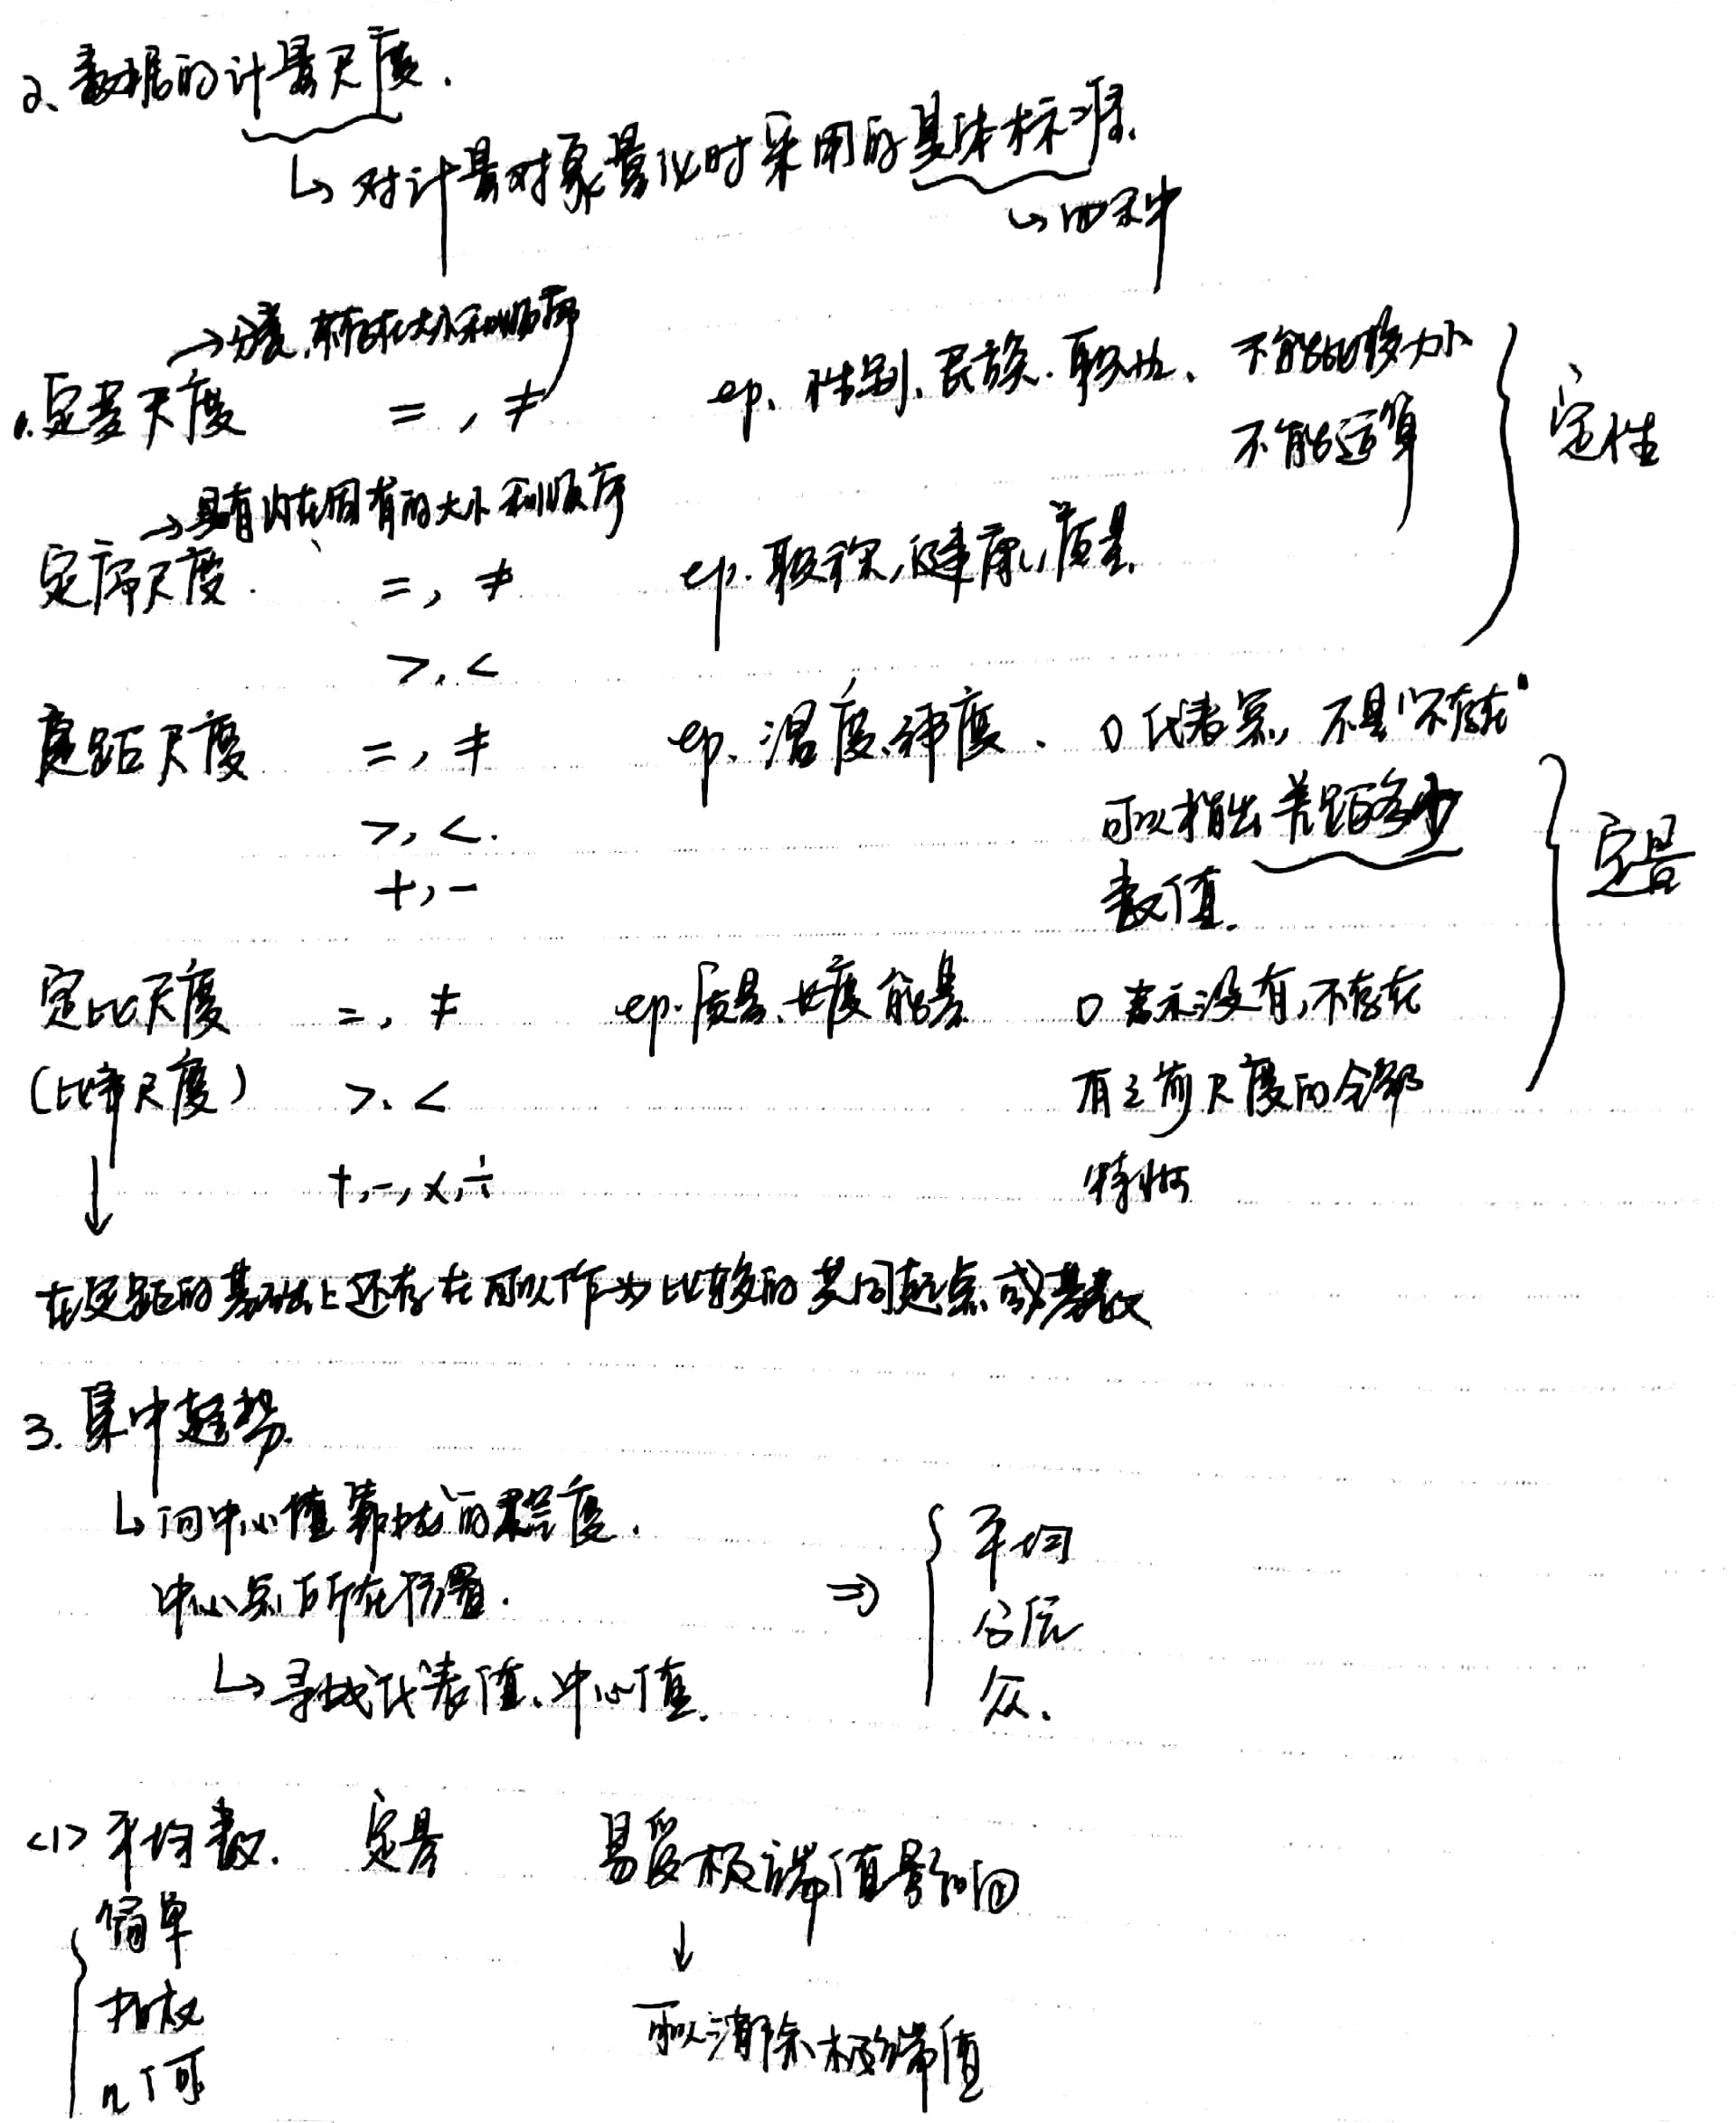 2、数据的计量尺度.
↳ 对计量对象量化时采用的具体标准.
↳ 四种
→分类,不存在大小和顺序
1.定类尺度 =,≠ ep、性别、民族.职业、不能比较大小
不能运算
定性
→具有内在固有的大小和顺序
定序尺度. =,≠ ep.职称,健康,质量.
>,<
定距尺度 =,≠ ep.温度、纬度、0代表点,不是"不存在"
>,<. 可以指出差距多少
+,- 数值.
定量
定比尺度 =,≠ ep.质量、长度 能量 0表示没有,不存在
(比率尺度) >.< 有之前尺度的全部
+,-,×,÷ 特性
↓
在定距的基础上还存在可以作为比较的共同起点或基数
3.集中趋势.
↳向中心值靠拢的程度.
中心点所在位置.
↳寻找代表值、中心值.
⇒ { 平均
分位
众.
<1>平均数. 定量 易受极端值影响
↓
可以消除极端值
{ 简单
加权
几何